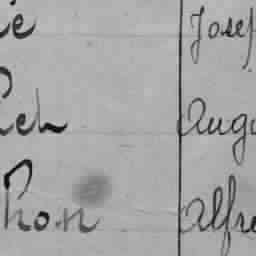 ie Josep
ch Augu
hon Alfre